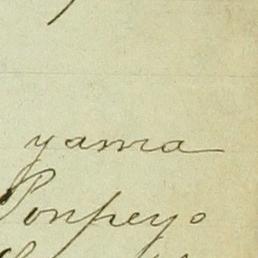 yama
Ponpeyo